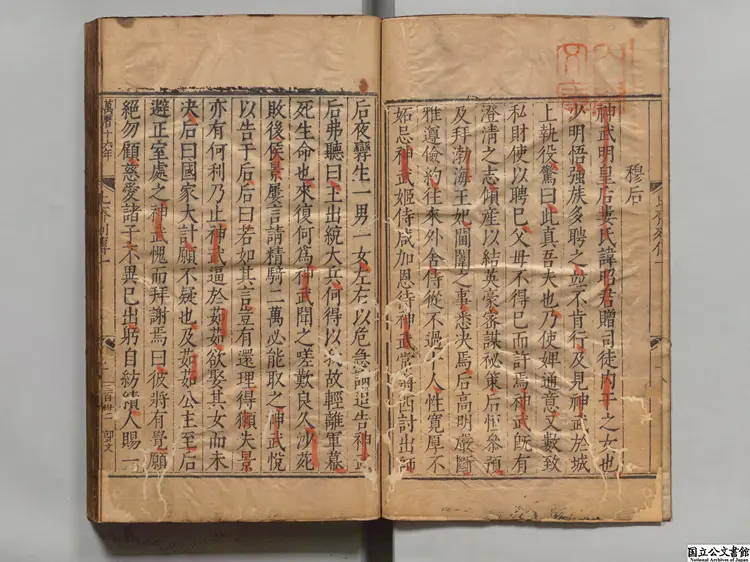 穆后
神武明皇后婁氏諱昭君贈司徒内干之女也
少明悟強族多聘之並不肯行及見神武於城
上執役驚曰此真吾夫也乃使婢通意又數致
私財使以聘己父母不得已而許焉神武既有
澄清之志傾產以結英豪密謀祕策后恒參預
及拜渤海王妃閫闈之事悉決焉后高明嚴斷
雅遵儉約往來外舍侍從不過十人性寬厚不
妬忌神武姬侍咸加恩待神武常將西討出師
后夜孿生一男一女左右以危急請追告神武
后弗聽曰王出統大兵何得以我故輕離軍幕
死生命也來復何為神武聞之嗟歎良久沙苑
敗後侯景屢言請精騎二萬必能取之神武悅
以告于后后曰若如其言豈有還理得獺失景
亦有何利乃止神武逼於茹茹欲娶其女而未
决后曰國家大計願不疑也及茹茹公主至后
避正室處之神武愧而拜謝焉曰彼將有覺願
絕勿顧慈愛諸子不異已出躬自紡績人賜一
萬曆十六年
北齊列傳一
國立公文書館
National Archives of Japan